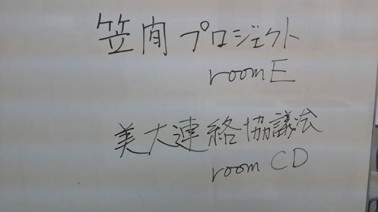 笠間プロジェクト
roomE
美大連絡協議会
room CD